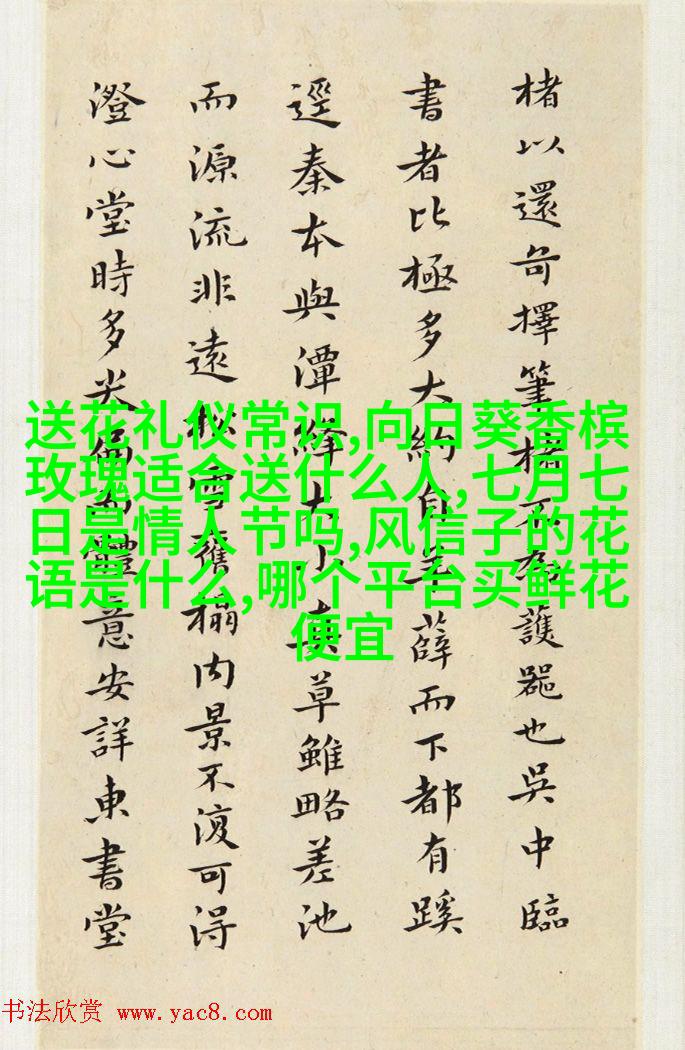 楮以還奇擇筆櫧不為護器也吳中臨
書者比極多大約自羊薛而下都有蹊
逕秦本與潭絳大小真草雖略差池
而源流非遠松雪舊榻内景不復可得
澄心堂時多米意安詳東書堂
送花礼仪常识,向日葵香槟
玫瑰适合送什么人,七月七
日是情人节吗,风信子的花
语是什么,哪个平台买鲜花
便宜
书法欣赏 www.yac8.com